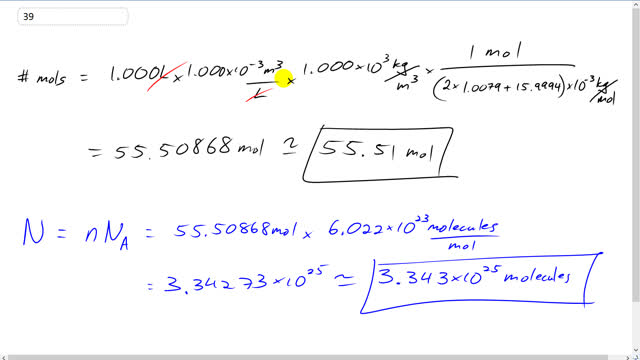 39
# mols = 1.000L × 1.000×10⁻³ m³/L × 1.000×10³ kg/m³ × 1 mol/(2×1.0079+15.9994)×10⁻³ kg/mol
= 55.50868 mol ≃ 55.51 mol
N = nN_A = 55.50868 mol × 6.022×10²³ molecules/mol
= 3.34273×10²⁵ ≃ 3.343×10²⁵ molecules